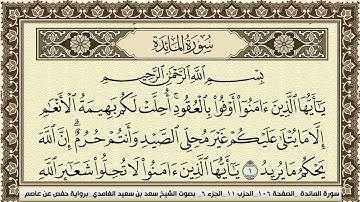 سُورَةُ المَائِدَةِ
بِسْمِ اللَّهِ الرَّحْمَٰنِ الرَّحِيمِ
يَٰٓأَيُّهَا ٱلَّذِينَ ءَامَنُوٓا۟ أَوْفُوا۟ بِٱلْعُقُودِ ۚ أُحِلَّتْ لَكُم بَهِيمَةُ ٱلْأَنْعَٰمِ
إِلَّا مَا يُتْلَىٰ عَلَيْكُمْ غَيْرَ مُحِلِّى ٱلصَّيْدِ وَأَنتُمْ حُرُمٌ ۗ إِنَّ ٱللَّهَ
يَحْكُمُ مَا يُرِيدُ ١ يَٰٓأَيُّهَا ٱلَّذِينَ ءَامَنُوا۟ لَا تُحِلُّوا۟ شَعَٰٓئِرَ ٱللَّهِ
سورة المائدة _الصفحة ١٠٦_الحزب ١١_الجزء ٦_ بصوت الشيخ سعد بن سعيد الغامدي_برواية حفص عن عاصم